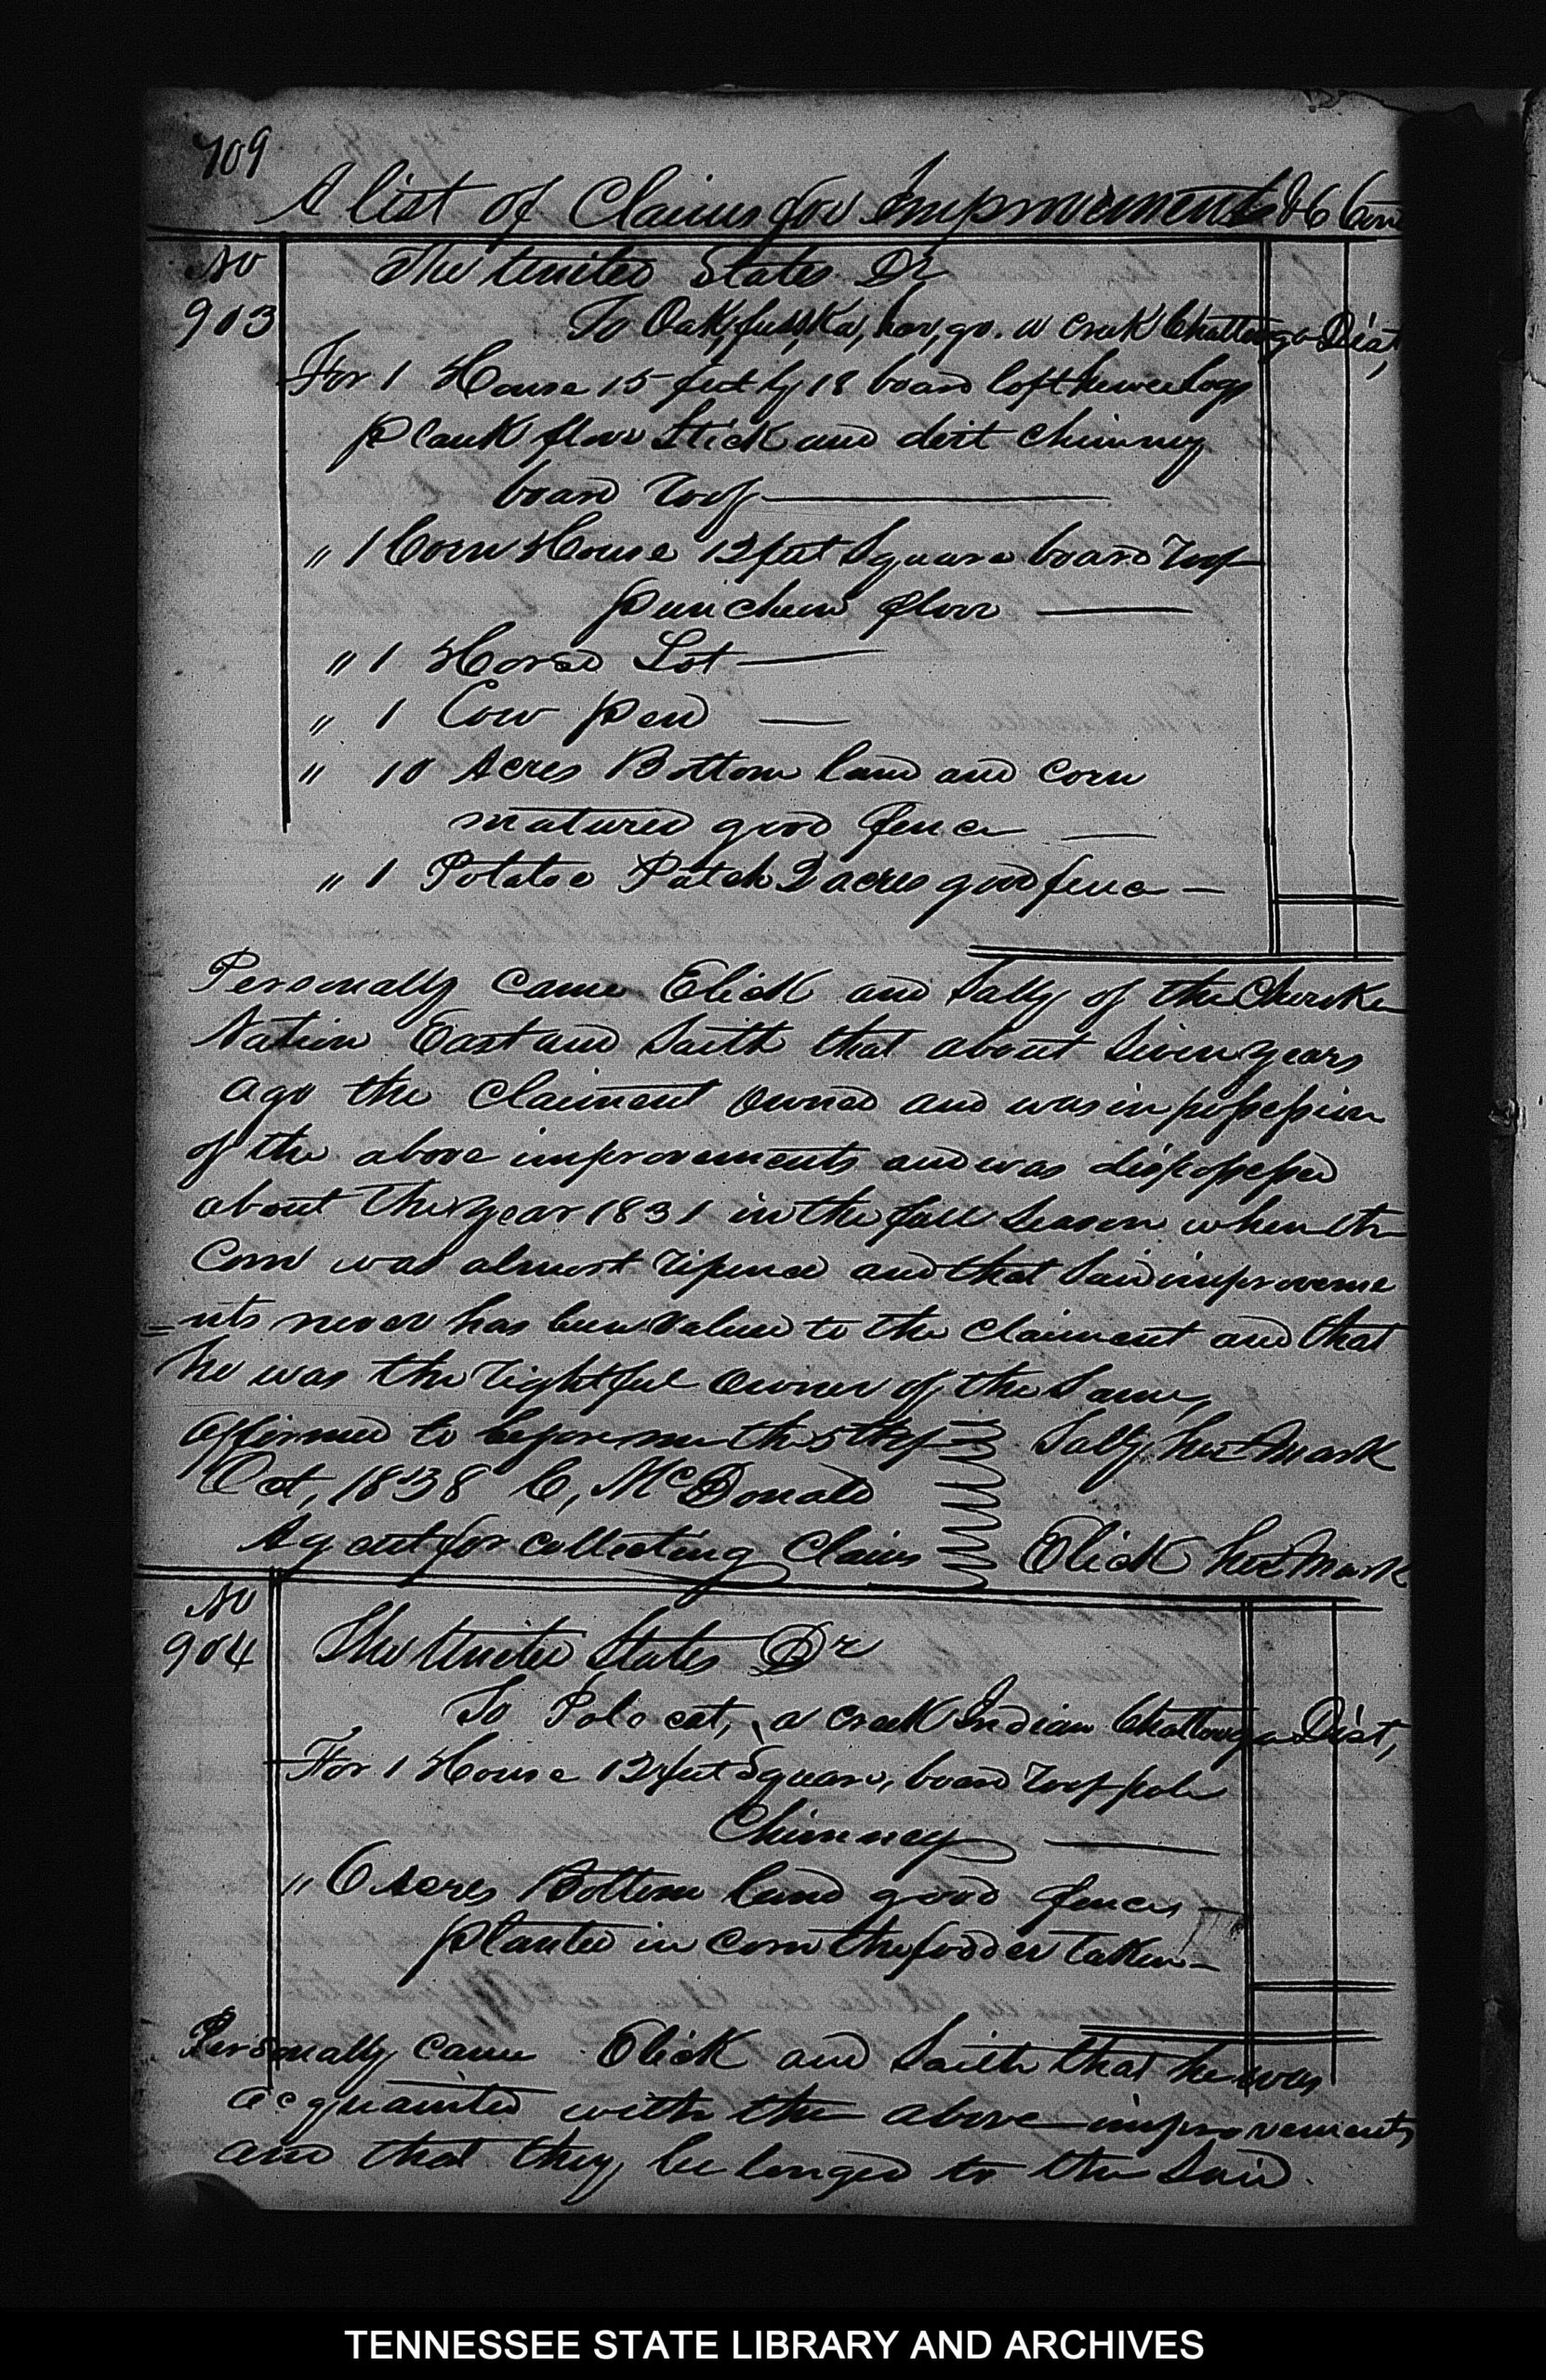 709
A list of Claims for Improvements &c Con
No
903
The United States Dr
To Oak,fus,Ka,har,go. a Creek Chattooga Dist,
For 1 House 15 feet by 18 board loft hewed logs
plank floor Stick and dirt Chimney
board roof
" 1 Corn House 12 feet Square board roof
puncheon floor
" 1 Horse Lot
" 1 Cow pen
" 10 Acres Bottom land and corn
matured good fence
" 1 Potatoe Patch 2 acres good fence
Personally came Elick and Sally of the Cherokee
Nation East and Saith that about Seven years
ago the Claimant owned and was in possession
of the above improvements and was dispossessed
about the year 1831 in the fall Season when the
Corn was almost ripened and that Said improveme
=nts never has been valued to the Claimant and that
he was the rightful owner of the Same,
Affirmed to before me this 5th of
Oct, 1838 C, McDonald
Agent for collecting Claims
Sally, her x mark
Elick his x mark
No
904
The United States Dr
To Pole cat, a Creek Indian Chattooga Dist,
For 1 House 12 feet Square, board roof pole
Chimney
" 6 Acres Bottom land good fences
planted in corn the fodder taken
Personally came Elick and Saith that he was
acquainted with the above improvements
and that they, belonged to the Said
TENNESSEE STATE LIBRARY AND ARCHIVES